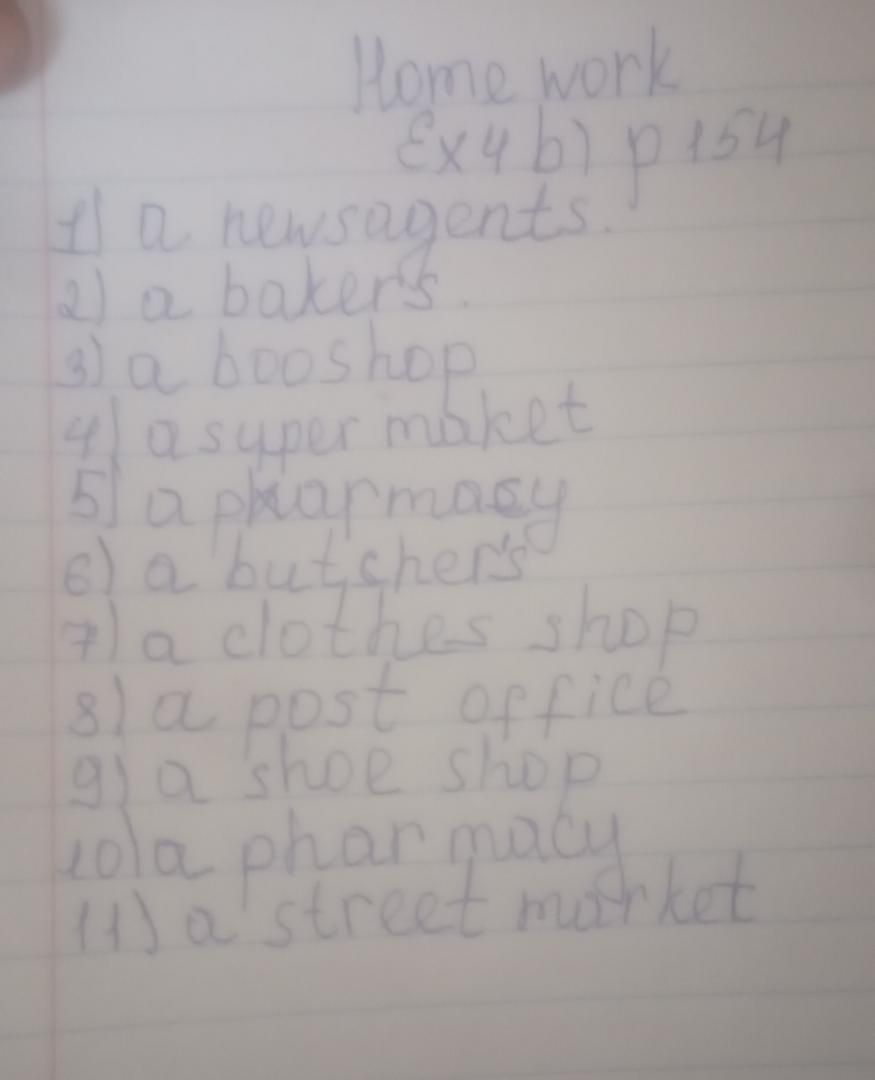 Home work
Ex 4 b) p 154
1) a newsagents.
2) a baker's.
3) a booshop
4) a super maket
5) a pharmacy
6) a butcher's
7) a clothes shop
8) a post office
9) a shoe shop
10) a pharmacy
11) a street market